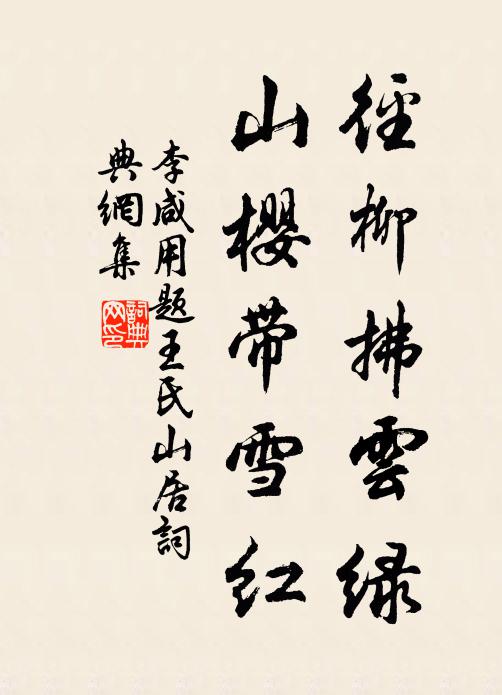 徑柳拂雲緑
山櫻帶雪紅
李咸用題王氏山居詞
典網集
詞典
网印